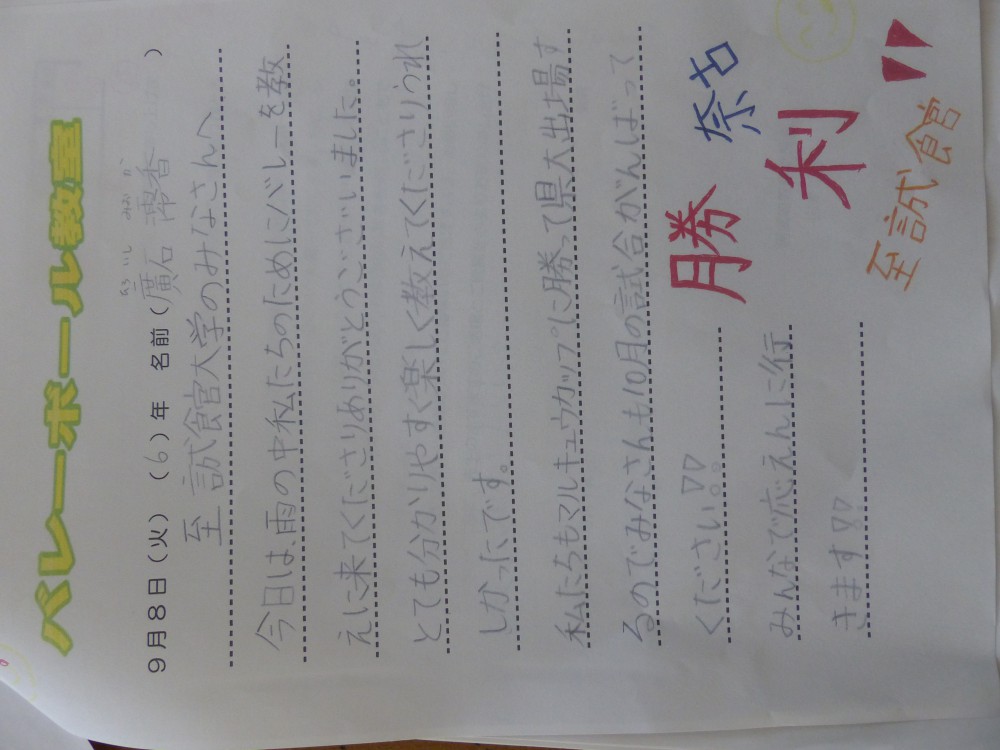 バレーボール教室
9月8日(火) (6)年 名前(廣石 澪香)
ひろ いし みお か
至誠館大学のみなさんへ
今日は、雨の中私たちのためにバレーを教
えに来てくださりありがとうございました。
とても分かりやすく楽しく教えてくださりうれ
しかったです。
私たちもマルキュウカップに勝って県大出場す
るのでみなさんも10月の試合がんばって
ください!!。
みんなで応えんに行
きます!!
勝利!!
奈古
至誠館